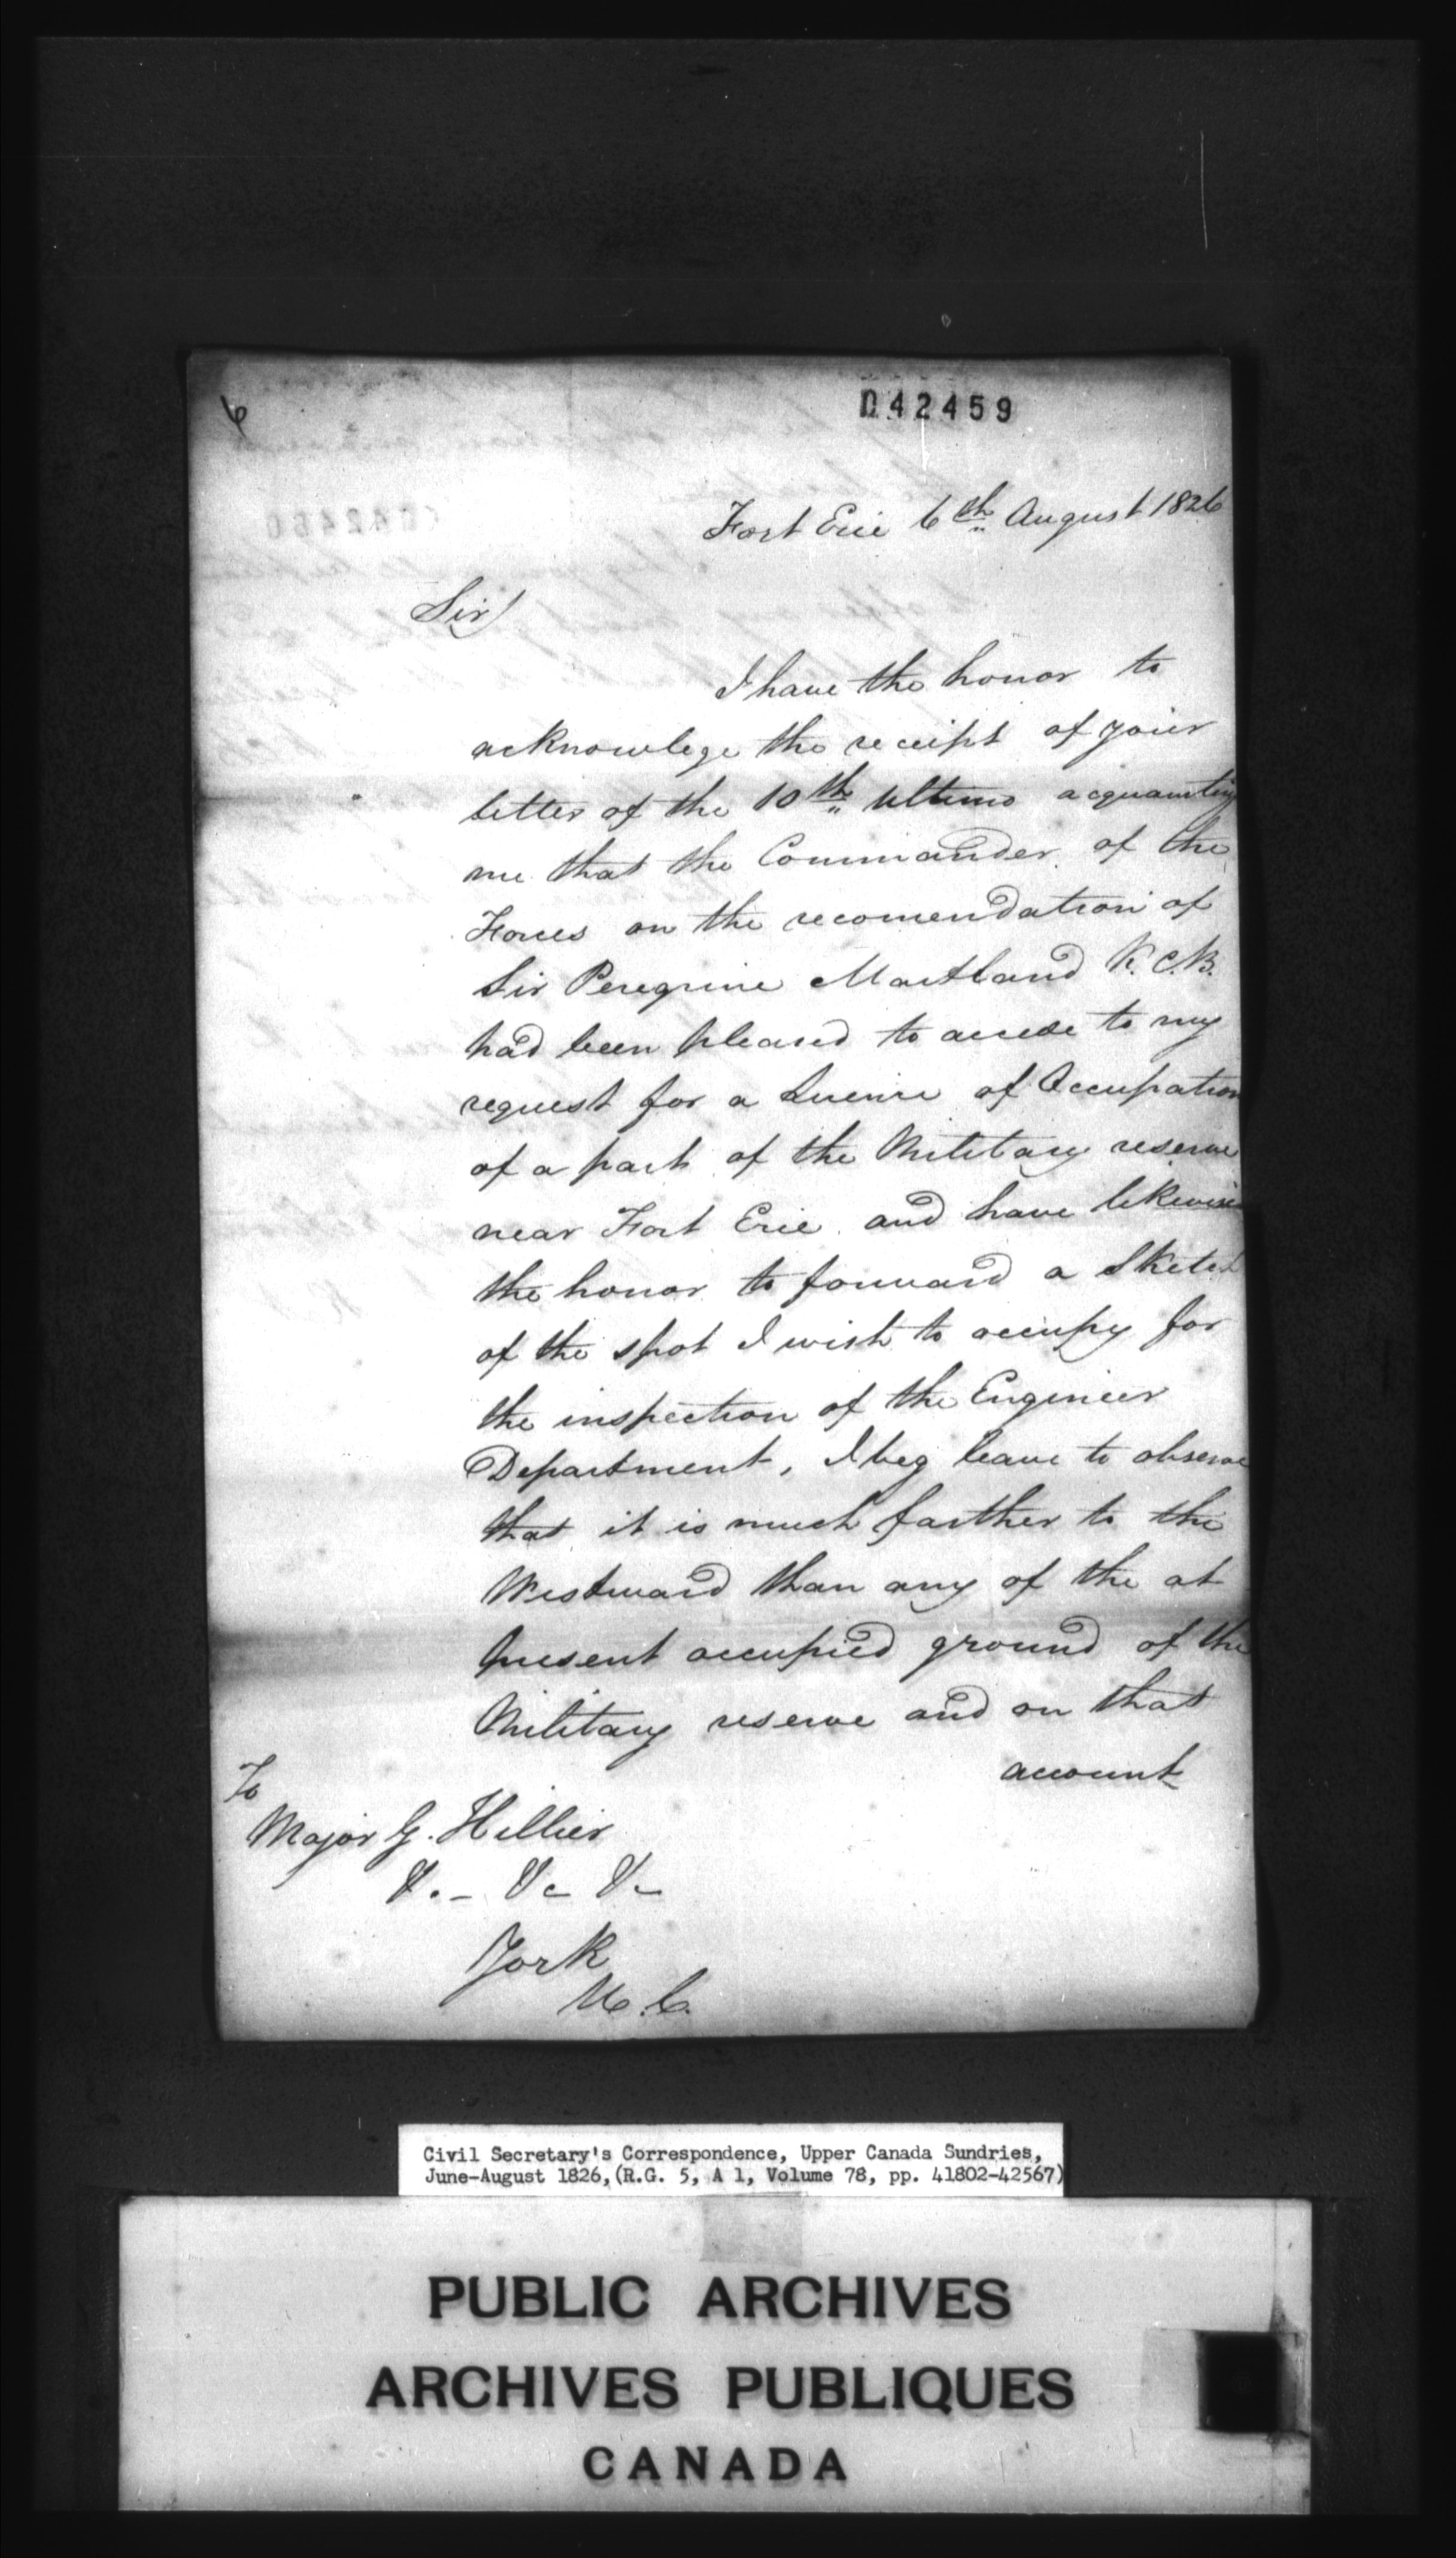 042459
Fort Erie 6th August 1826
Sir
I have the honor to
acknowlege the receipt of your
letter of the 10th Ultimo acquainting
me that the Commander of the
Forces on the recomendation of
Sir Peregrine Maitland K.C.B.
had been pleased to accede to my
request for a Licence of Occupation
of a part of the Military reserve
near Fort Erie and have likewise
the honor to forward a Sketch
of the spot I wish to occupy for
the inspection of the Engineer
Department, I beg leave to observe
that it is much farther to the
Westward than any of the at
present occupied ground of the
Military reserve and on that
account
To
Major G. Hillier
&c. &c &c
York
U.C.
Civil Secretary's Correspondence, Upper Canada Sundries,
June-August 1826,(R.G. 5, A 1, Volume 78, pp. 41802-42567)
PUBLIC ARCHIVES
ARCHIVES PUBLIQUES
CANADA